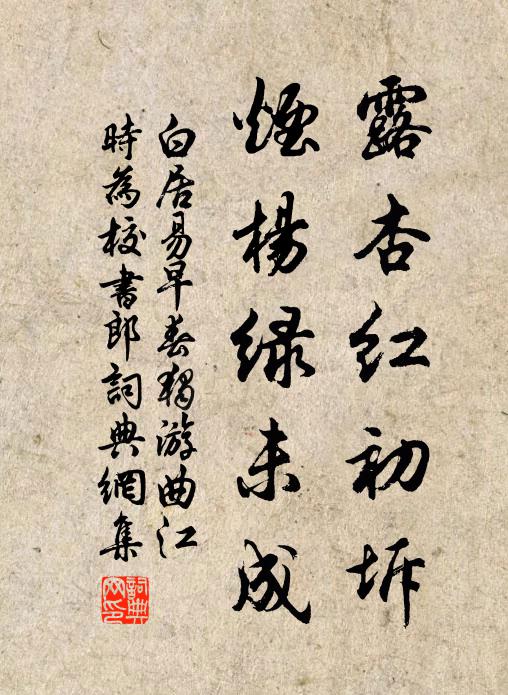 露杏红初坼
煙楊绿未成
白居易早春独游曲江
時為校書郎詞典網集
詞典网印